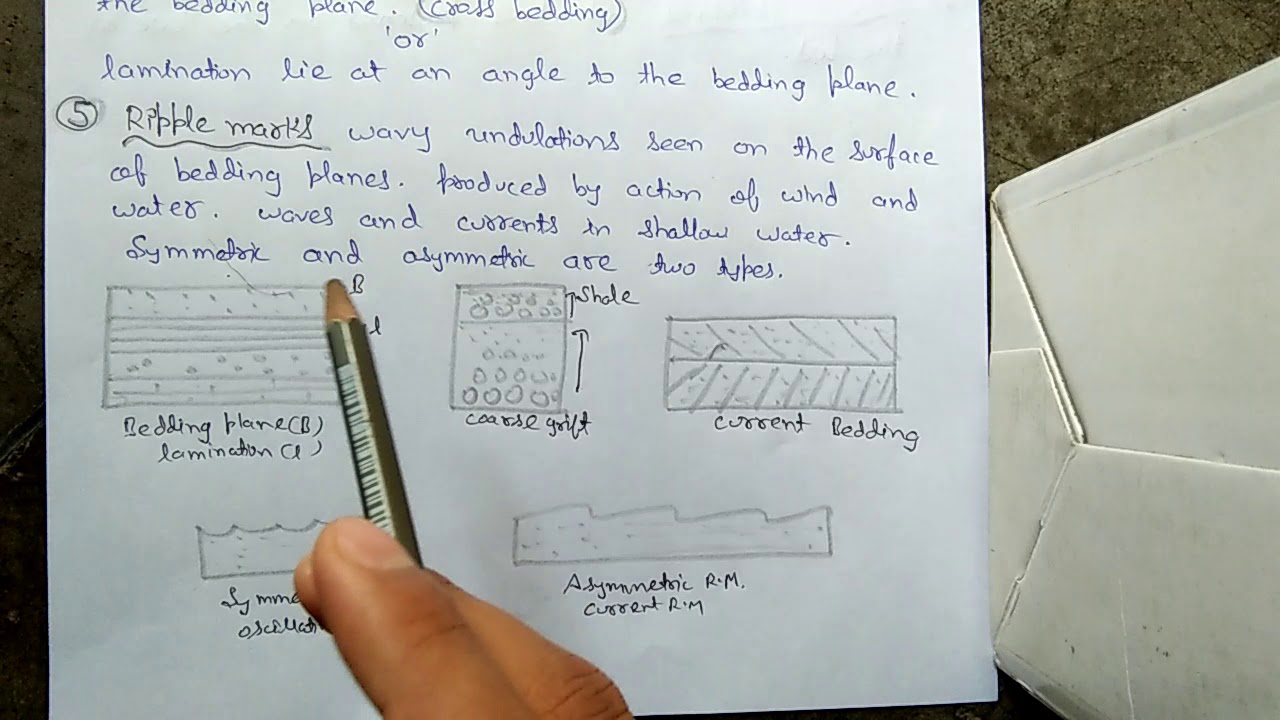 the bedding plane. (Cross bedding)
'or'
lamination lie at an angle to the bedding plane.
5 Ripple marks wavy undulations seen on the surface
of bedding planes. Produced by action of wind and
water. waves and currents in shallow water.
Symmetric and asymmetric are two types.
B
l
Shale
Bedding plane(B)
lamination (l)
coarse grift
current Bedding
Asymmetric R.M.
current R.M